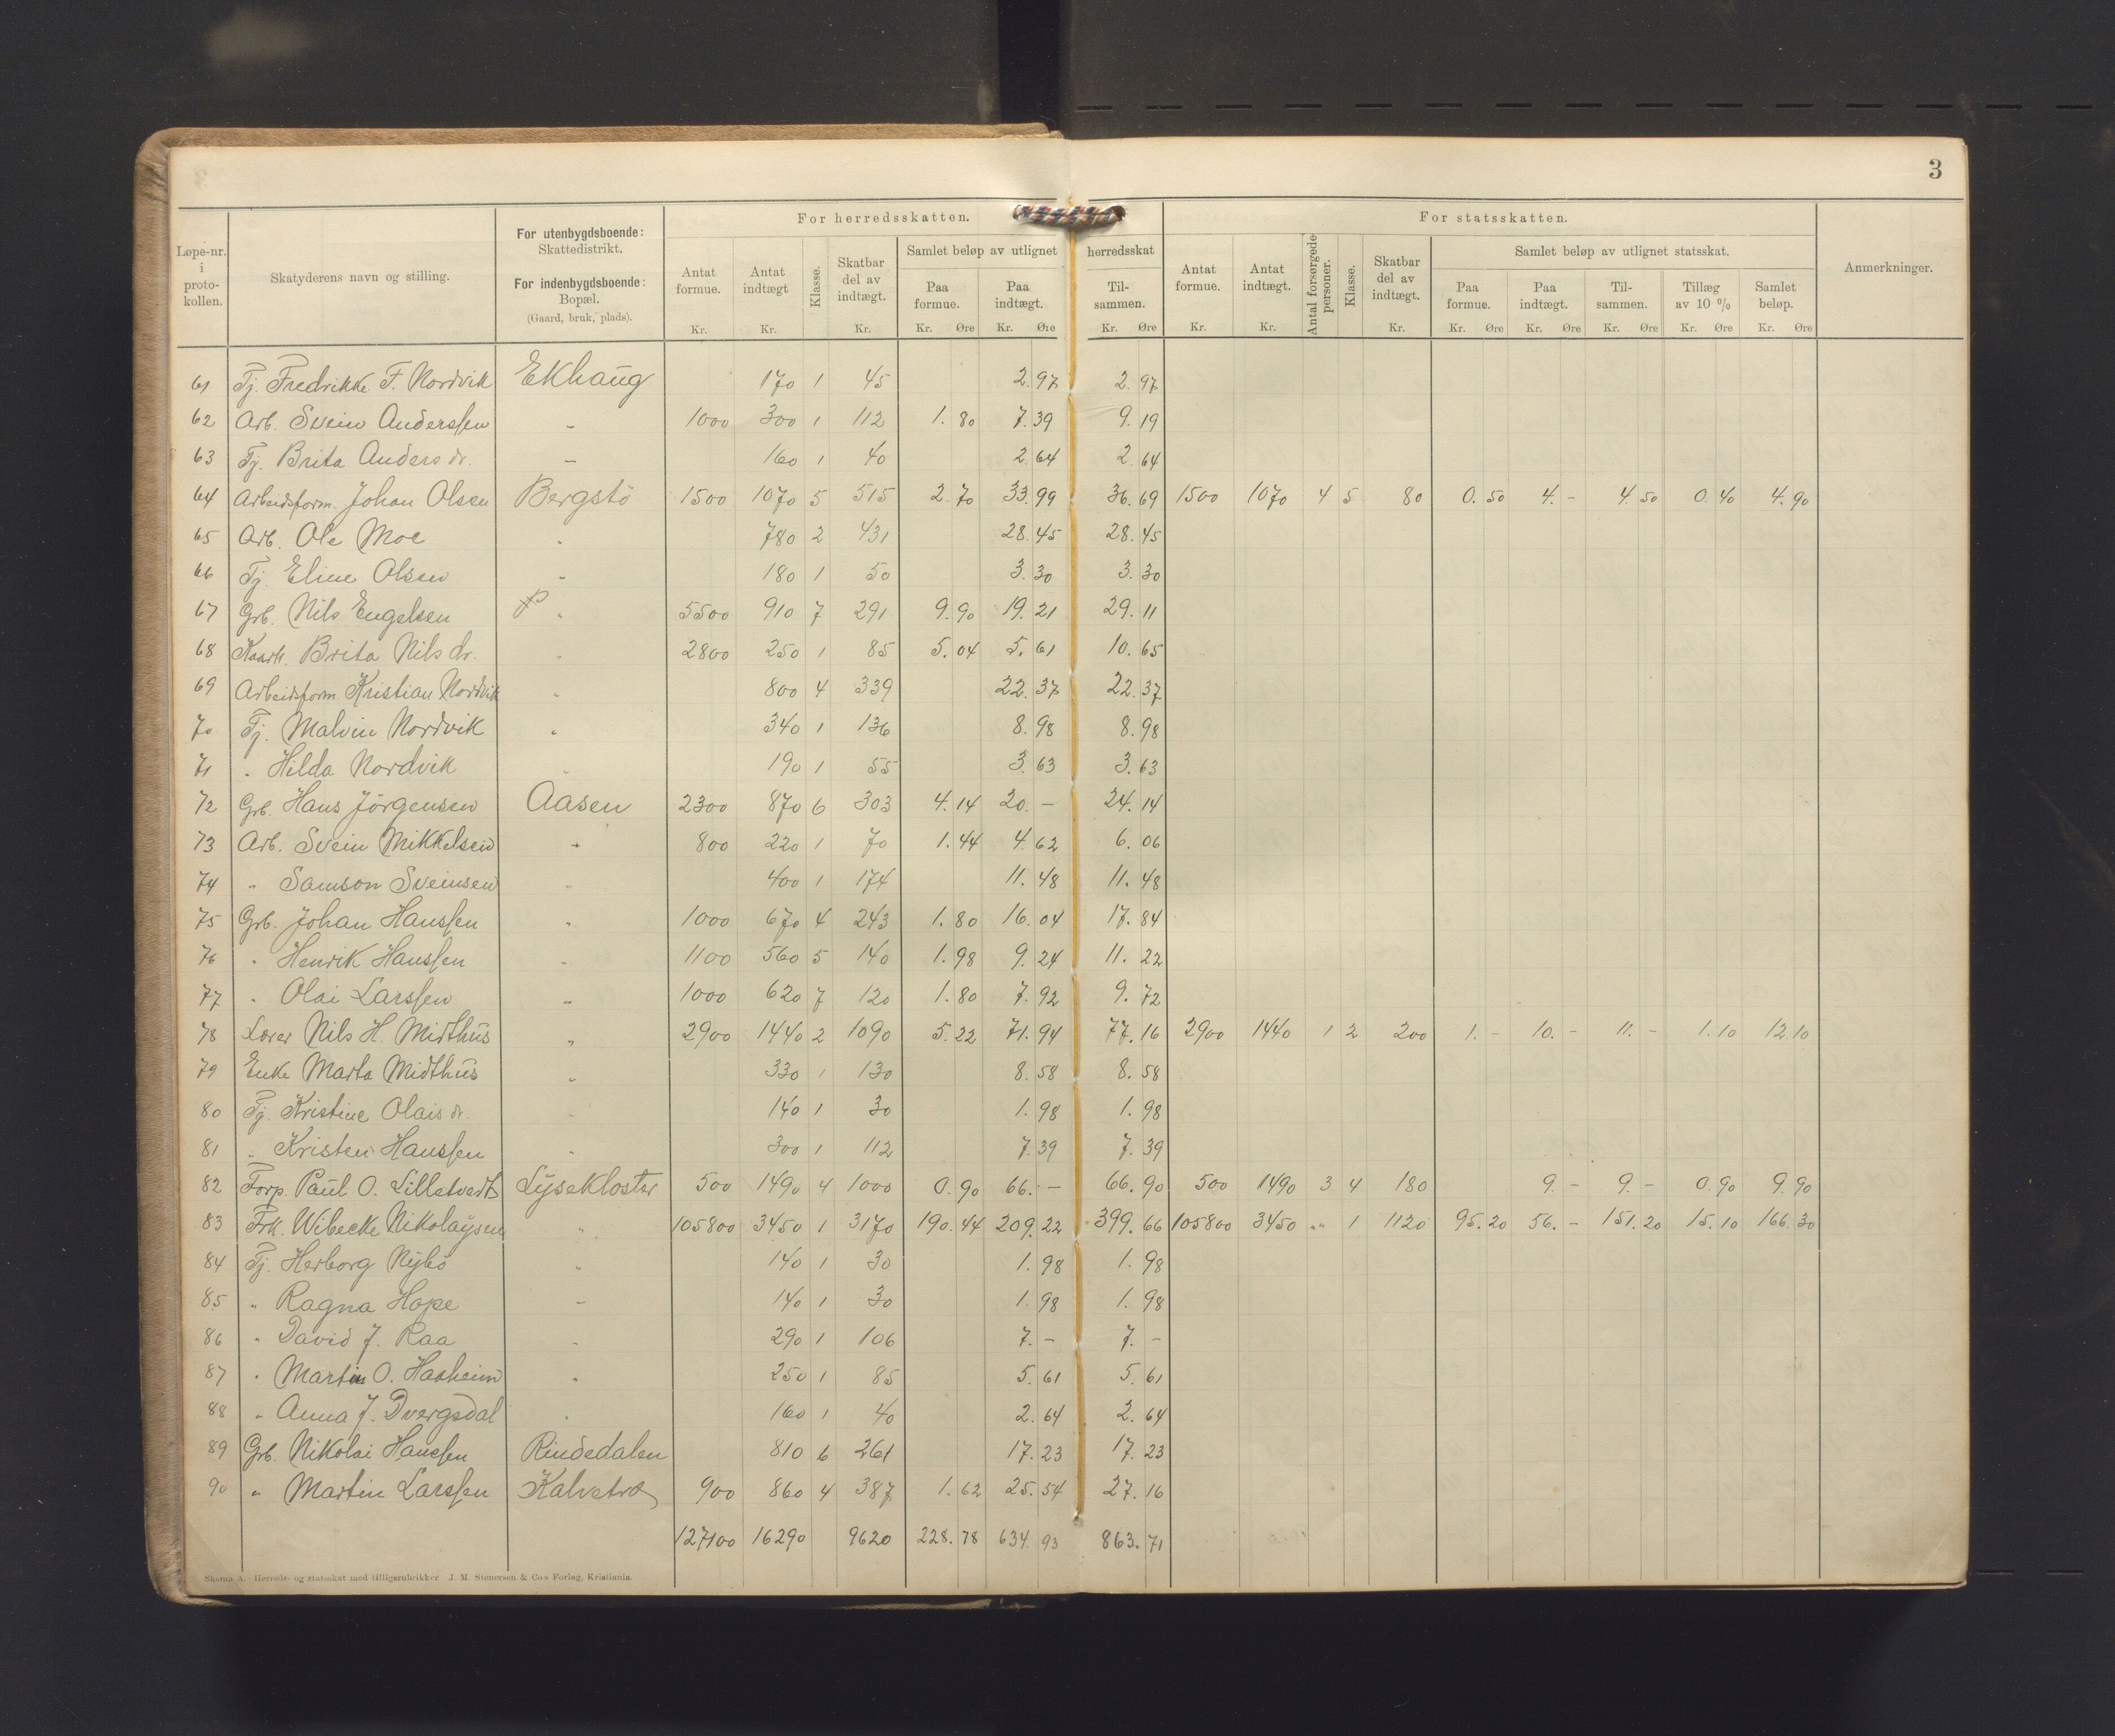 3
For herredsskatten. For statsskatten.
Løpe-nr. i proto-kollen. Skatyderens navn og stilling. For utenbygdsboende: Skattedistrikt. For indenbygdsboende: Bopæl. (Gaard, bruk, plads). Antat formue. Kr. Antat indtægt Kr. Klasse. Skatbar del av indtægt. Kr. Samlet beløp av utlignet herredsskat Paa formue. Kr. Øre Paa indtægt. Kr. Øre Til-sammen. Kr. Øre Antat formue. Kr. Antat indtægt. Kr. Antal forsørgede personer. Klasse. Skatbar del av indtægt. Kr. Samlet beløp av utlignet statsskat. Paa formue. Kr. Øre Paa indtægt. Kr. Øre Til-sammen. Kr. Øre Tillæg av 10 % Kr. Øre Samlet beløp. Kr. Øre Anmerkninger.
61 Tj. Fredrikke F. Nordvik Ekhaug 170 1 45 2.97 2.97
62 Arb. Svein Anderssen - 1000 300 1 112 1.80 7.39 9.19
63 Tj. Brita Anders dr. - 160 1 40 2.64 2.64
64 Arbeidsform. Johan Olsen Bergstö 1500 1070 5 515 2.70 33.99 36.69 1500 1070 4 5 80 0.50 4.- 4.50 0.40 4.90
65 Arb. Ole Moe " 780 2 431 28.45 28.45
66 Tj. Eline Olsen " 180 1 50 3.30 3.30
67 Grb. Nils Engelsen " 5500 910 7 291 9.90 19.21 29.11
68 Kaark. Brita Nils dr. " 2800 250 1 85 5.04 5.61 10.65
69 Arbeidsform Kristian Nordvik " 800 4 339 22.37 22.37
70 Tj. Malvin Nordvik " 340 1 136 8.98 8.98
71 " Hilda Nordvik " 190 1 55 3.63 3.63
72 Grb. Hans Jörgensen Aasen 2300 870 6 303 4.14 20.- 24.14
73 Arb. Svein Mikkelsen " 800 220 1 70 1.44 4.62 6.06
74 " Samson Sveinsen " 400 1 174 11.48 11.48
75 Grb. Johan Hanssen " 1000 670 4 243 1.80 16.04 17.84
76 " Henrik Hanssen " 1100 560 5 140 1.98 9.24 11.22
77 " Olai Larssen " 1000 620 7 120 1.80 7.92 9.72
78 Lærer Nils H. Midthus " 2900 1440 2 1090 5.22 71.94 77.16 2900 1440 1 2 200 1.- 10.- 11.- 1.10 12.10
79 Enke Marta Midthus " 330 1 130 8.58 8.58
80 Tj. Kristine Olais dr. " 140 1 30 1.98 1.98
81 " Kristen Hanssen " 300 1 112 7.39 7.39
82 Forp. Paul O. Lilletvedt Lysekloster 500 1490 4 1000 0.90 66.- 66.90 500 1490 3 4 180 9.- 9.- 0.90 9.90
83 Frk. Wibecke Nikolaysen " 105800 3450 1 3170 190.44 209.22 399.66 105800 3450 " 1 1120 95.20 56.- 151.20 15.10 166.30
84 Tj. Herborg Nybö " 140 1 30 1.98 1.98
85 " Ragna Hope - 140 1 30 1.98 1.98
86 " David J. Raa - 290 1 106 7.- 7.-
87 " Martin O. Haaheim " 250 1 85 5.61 5.61
88 " Anna J. Dvergsdal " 160 1 40 2.64 2.64
89 Grb. Nikolai Hanssen Rindedalen 810 6 261 17.23 17.23
90 " Martin Larssen Kalvetræ 900 860 4 387 1.62 25.54 27.16
127100 16290 9620 228.78 634.93 863.71
Skema A. Herreds- og statsskat med tilligsrubrikker J. M. Stenersen & Co.s Forlag, Kristiania.